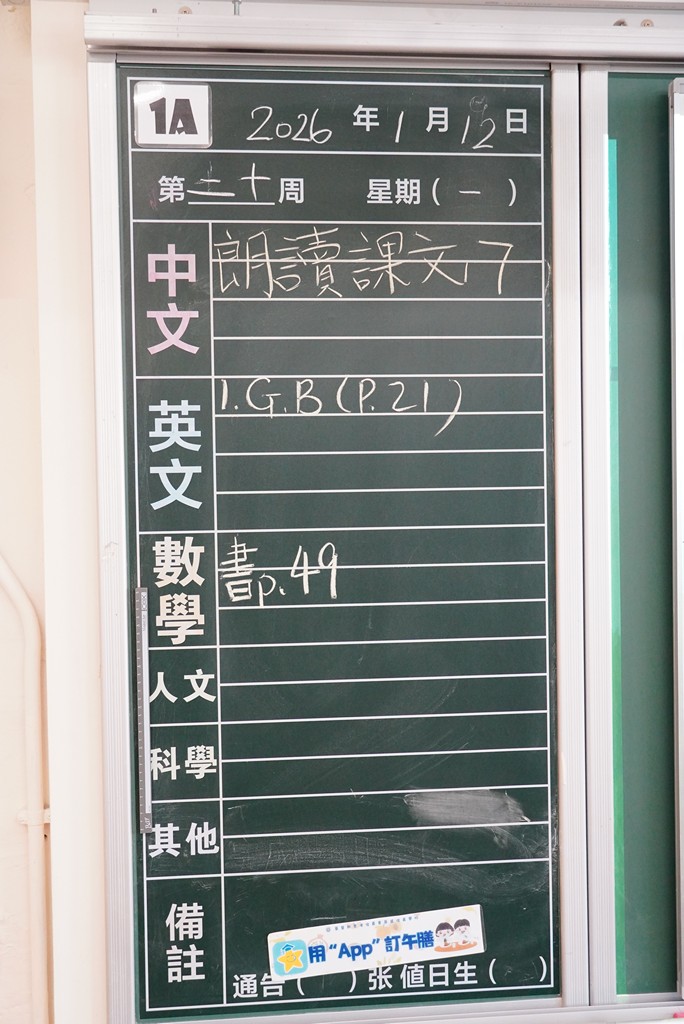 1A 2026 年 1 月 12 日
第二十周 星期(一)
中文 朗讀課文17
英文 1. G.B (P.21)
數學 書p.49
人文
科學
其他
備註
用“App”訂午膳
通告( )张 值日生( )